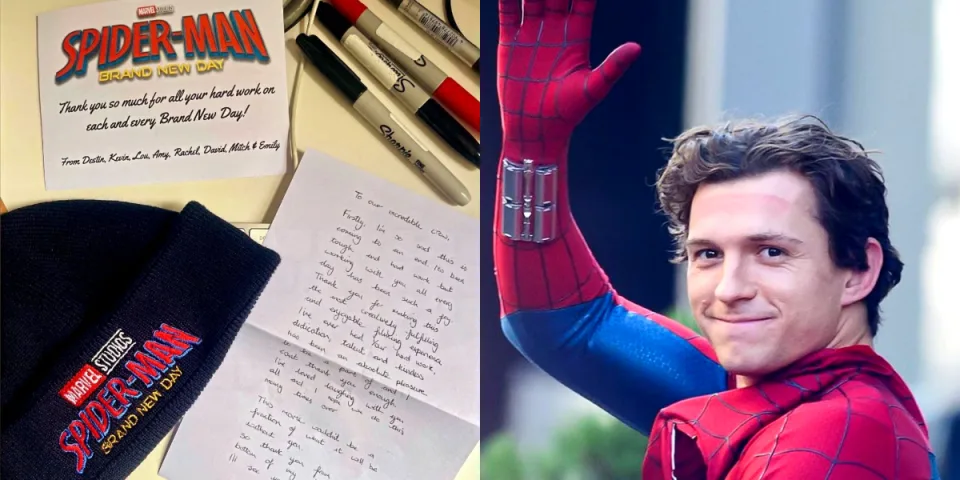 MARVEL STUDIOS
SPIDER-MAN
BRAND NEW DAY
Thank you so much for all your hard work on
each and every Brand New Day!
From Destin, Kevin, Lou, Amy, Rachel, David, Mitch & Emily
Sharpie
Sharpie
To our incredible crew,
Firstly, I'm so sad this is
coming to an end. It's been
tough and hard work but
working with you all every
day has been such a joy.
Thank you for making this
the most creatively fulfilling
and enjoyable filming experience
I've ever had. Your hard work,
dedication, talent and kindness
has been an absolute pleasure.
I can't thank you enough!
I've loved laughing with you
all and I'd do this
times over.
This movie wouldn't be a
fraction of what it will be
without you.
So thank you from
bottom of my
I'll see
MARVEL STUDIOS
SPIDER-MAN
BRAND NEW DAY